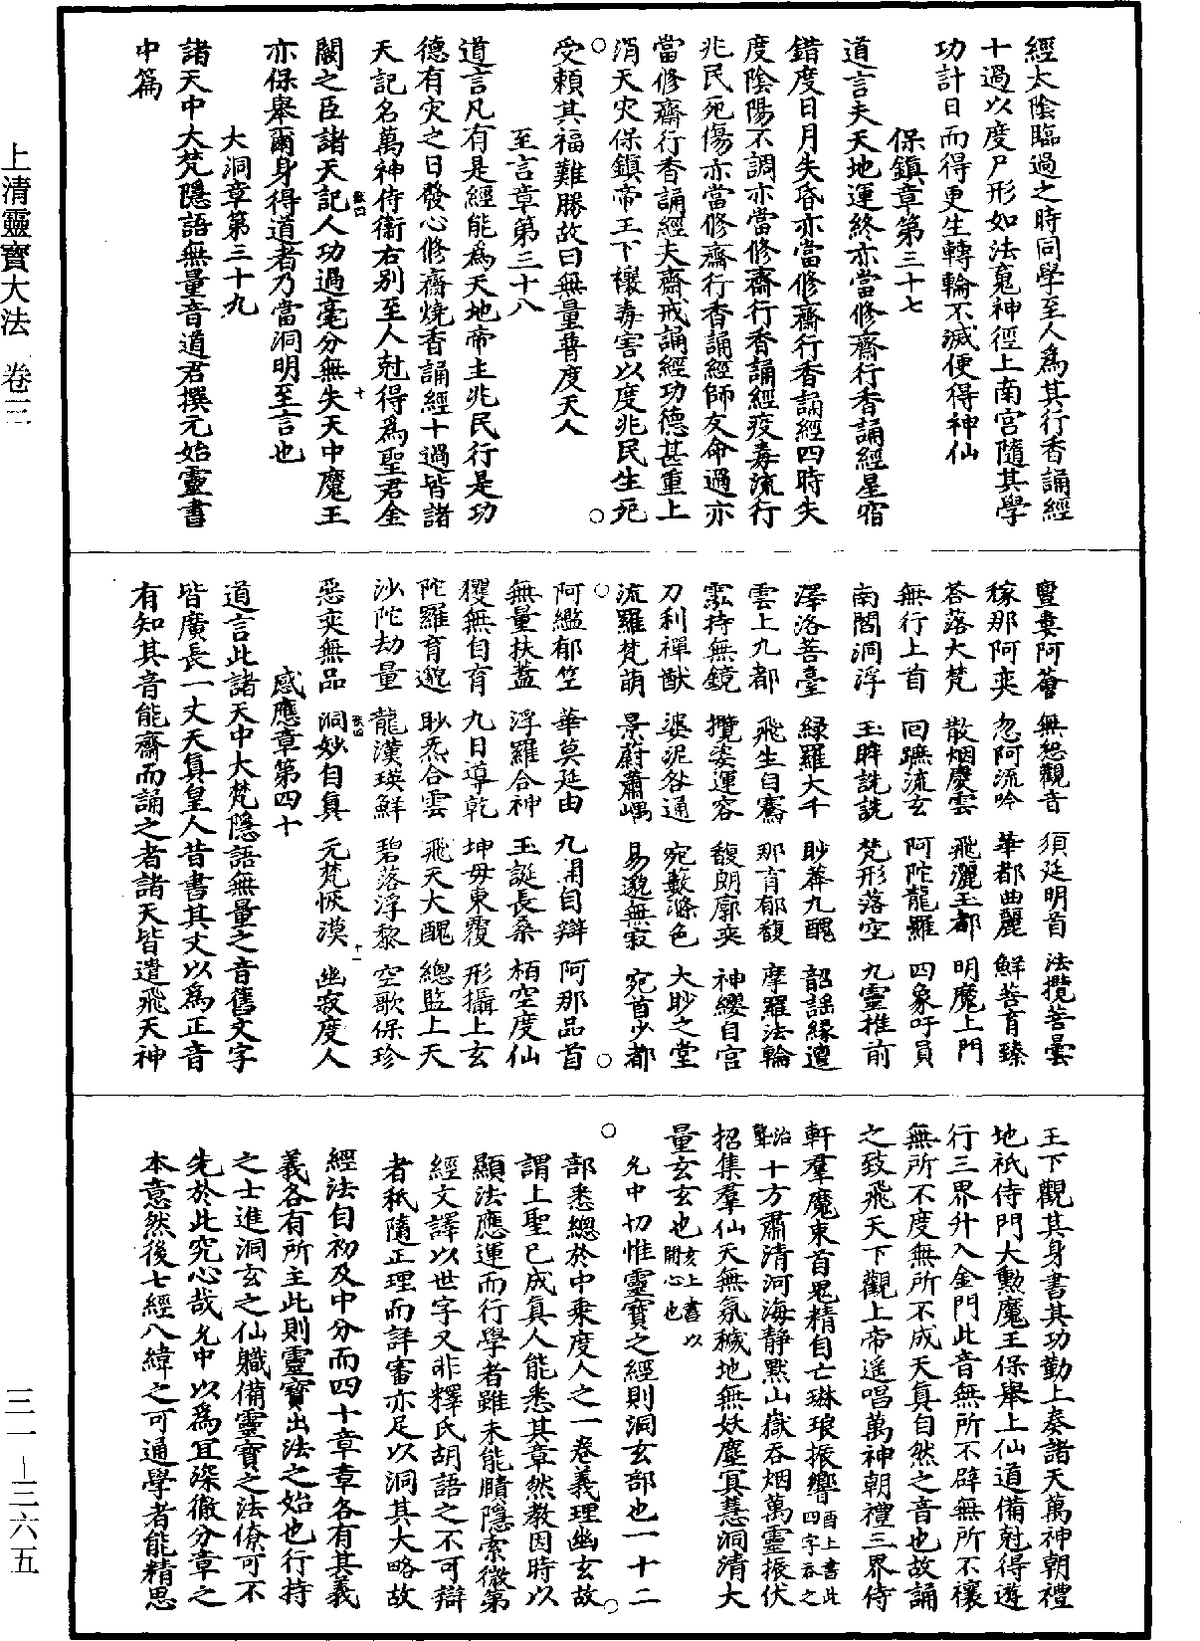 經太陰臨過之時同學至人爲其行香誦經
十過以度尸形如法䰟神徑上南宮隨其學
功計日而得更生轉輪不滅便得神仙
保鎮章第三十七
道言夫天地運終亦當修齋行香誦經星宿
錯度日月失昏亦當修齋行香誦經四時失
度陰陽不調亦當修齋行香誦經疫毒流行
兆民死傷亦當修齋行香誦經師友命過亦
當修齋行香誦經夫齋戒誦經功德甚重上
消天灾保鎮帝王下禳毒害以度兆民生死
受賴其福難勝故曰無量普度天人
至言章第三十八
道言凡有是經能爲天地帝主兆民行是功
德有灾之日發心修齋燒香誦經十過皆諸
天記名萬神侍衞右别至人尅得爲聖君金
闕之臣諸天記人功過毫分無失天中魔王
亦保舉爾身得道者乃當洞明至言也
大洞章第三十九
諸天中大梵隱語無量音道君撰元始靈書
中篇
亶婁阿薈 無惒觀音 須延明首 法攬菩曇
稼那阿奕 忽阿流吟 華都曲麗 鮮菩育臻
荅落大梵 散烟慶雲 飛灑玉都 明魔上門
無行上首 回蹠流玄 阿陀龍羅 四象吁員
南閻洞浮 玉眸詵詵 梵形落空 九靈推前
澤洛菩臺 緑羅大千 眇莽九醜 韶謡緣邅
雲上九都 飛生自騫 那育郁馥 摩羅法輪
霐持無鏡 攬姿運容 馥朗廓奕 神纓自宮
刀利禪猷 婆泥咎通 宛藪滌色 大眇之堂
流羅梵萌 景蔚蕭嵎 易邈無寂 宛首少都
阿𤃗郁竺 華莫延由 九開自辯 阿那品首
無量扶蓋 浮羅合神 玉誕長桑 栢空度仙
玃無自育 九日導乾 坤母東覆 形攝上玄
陀羅育邈 眇炁合雲 飛天大醜 總監上天
沙陀劫量 龍漢瑛鮮 碧落浮黎 空歌保珍
惡奕無品 洞妙自真 元梵恢漠 幽寂度人
感應章第四十
道言此諸天中大梵隱語無量之音舊文字
皆廣長一丈天真皇人昔書其文以爲正音
有知其音能齋而誦之者諸天皆遣飛天神
王下觀其身書其功勤上奏諸天萬神朝禮
地祇侍門大勳魔王保舉上仙道備尅得遊
行三界升入金門此音無所不辟無所不禳
無所不度無所不成天真自然之音也故誦
之致飛天下觀上帝遥唱萬神朝禮三界侍
軒羣魔束首鬼精自亡琳琅振響酉上書此四字吞之
治聾十方肅清河海静默山嶽吞烟萬靈振伏
招集羣仙天無氛穢地無妖塵冥慧洞清大
量玄玄也亥上書以開心也
允中切惟靈寶之經則洞玄部也一十二
部悉總於中乘度人之一卷義理幽玄故
謂上聖已成真人能悉其章然教因時以
顯法應運而行學者雖未能賾隱索微第
經文譯以世字又非釋氏胡語之不可辯
者秖隨正理而詳審亦足以洞其大略故
經法自初及中分而四十章章各有其義
義各有所主此則靈寶出法之始也行持
之士進洞玄之仙軄備靈寶之法僚可不
先於此究心哉允中以爲宜深徹分章之
本意然後七經八緯之可通學者能精思
上清靈寶大法 卷三
三一—三六五